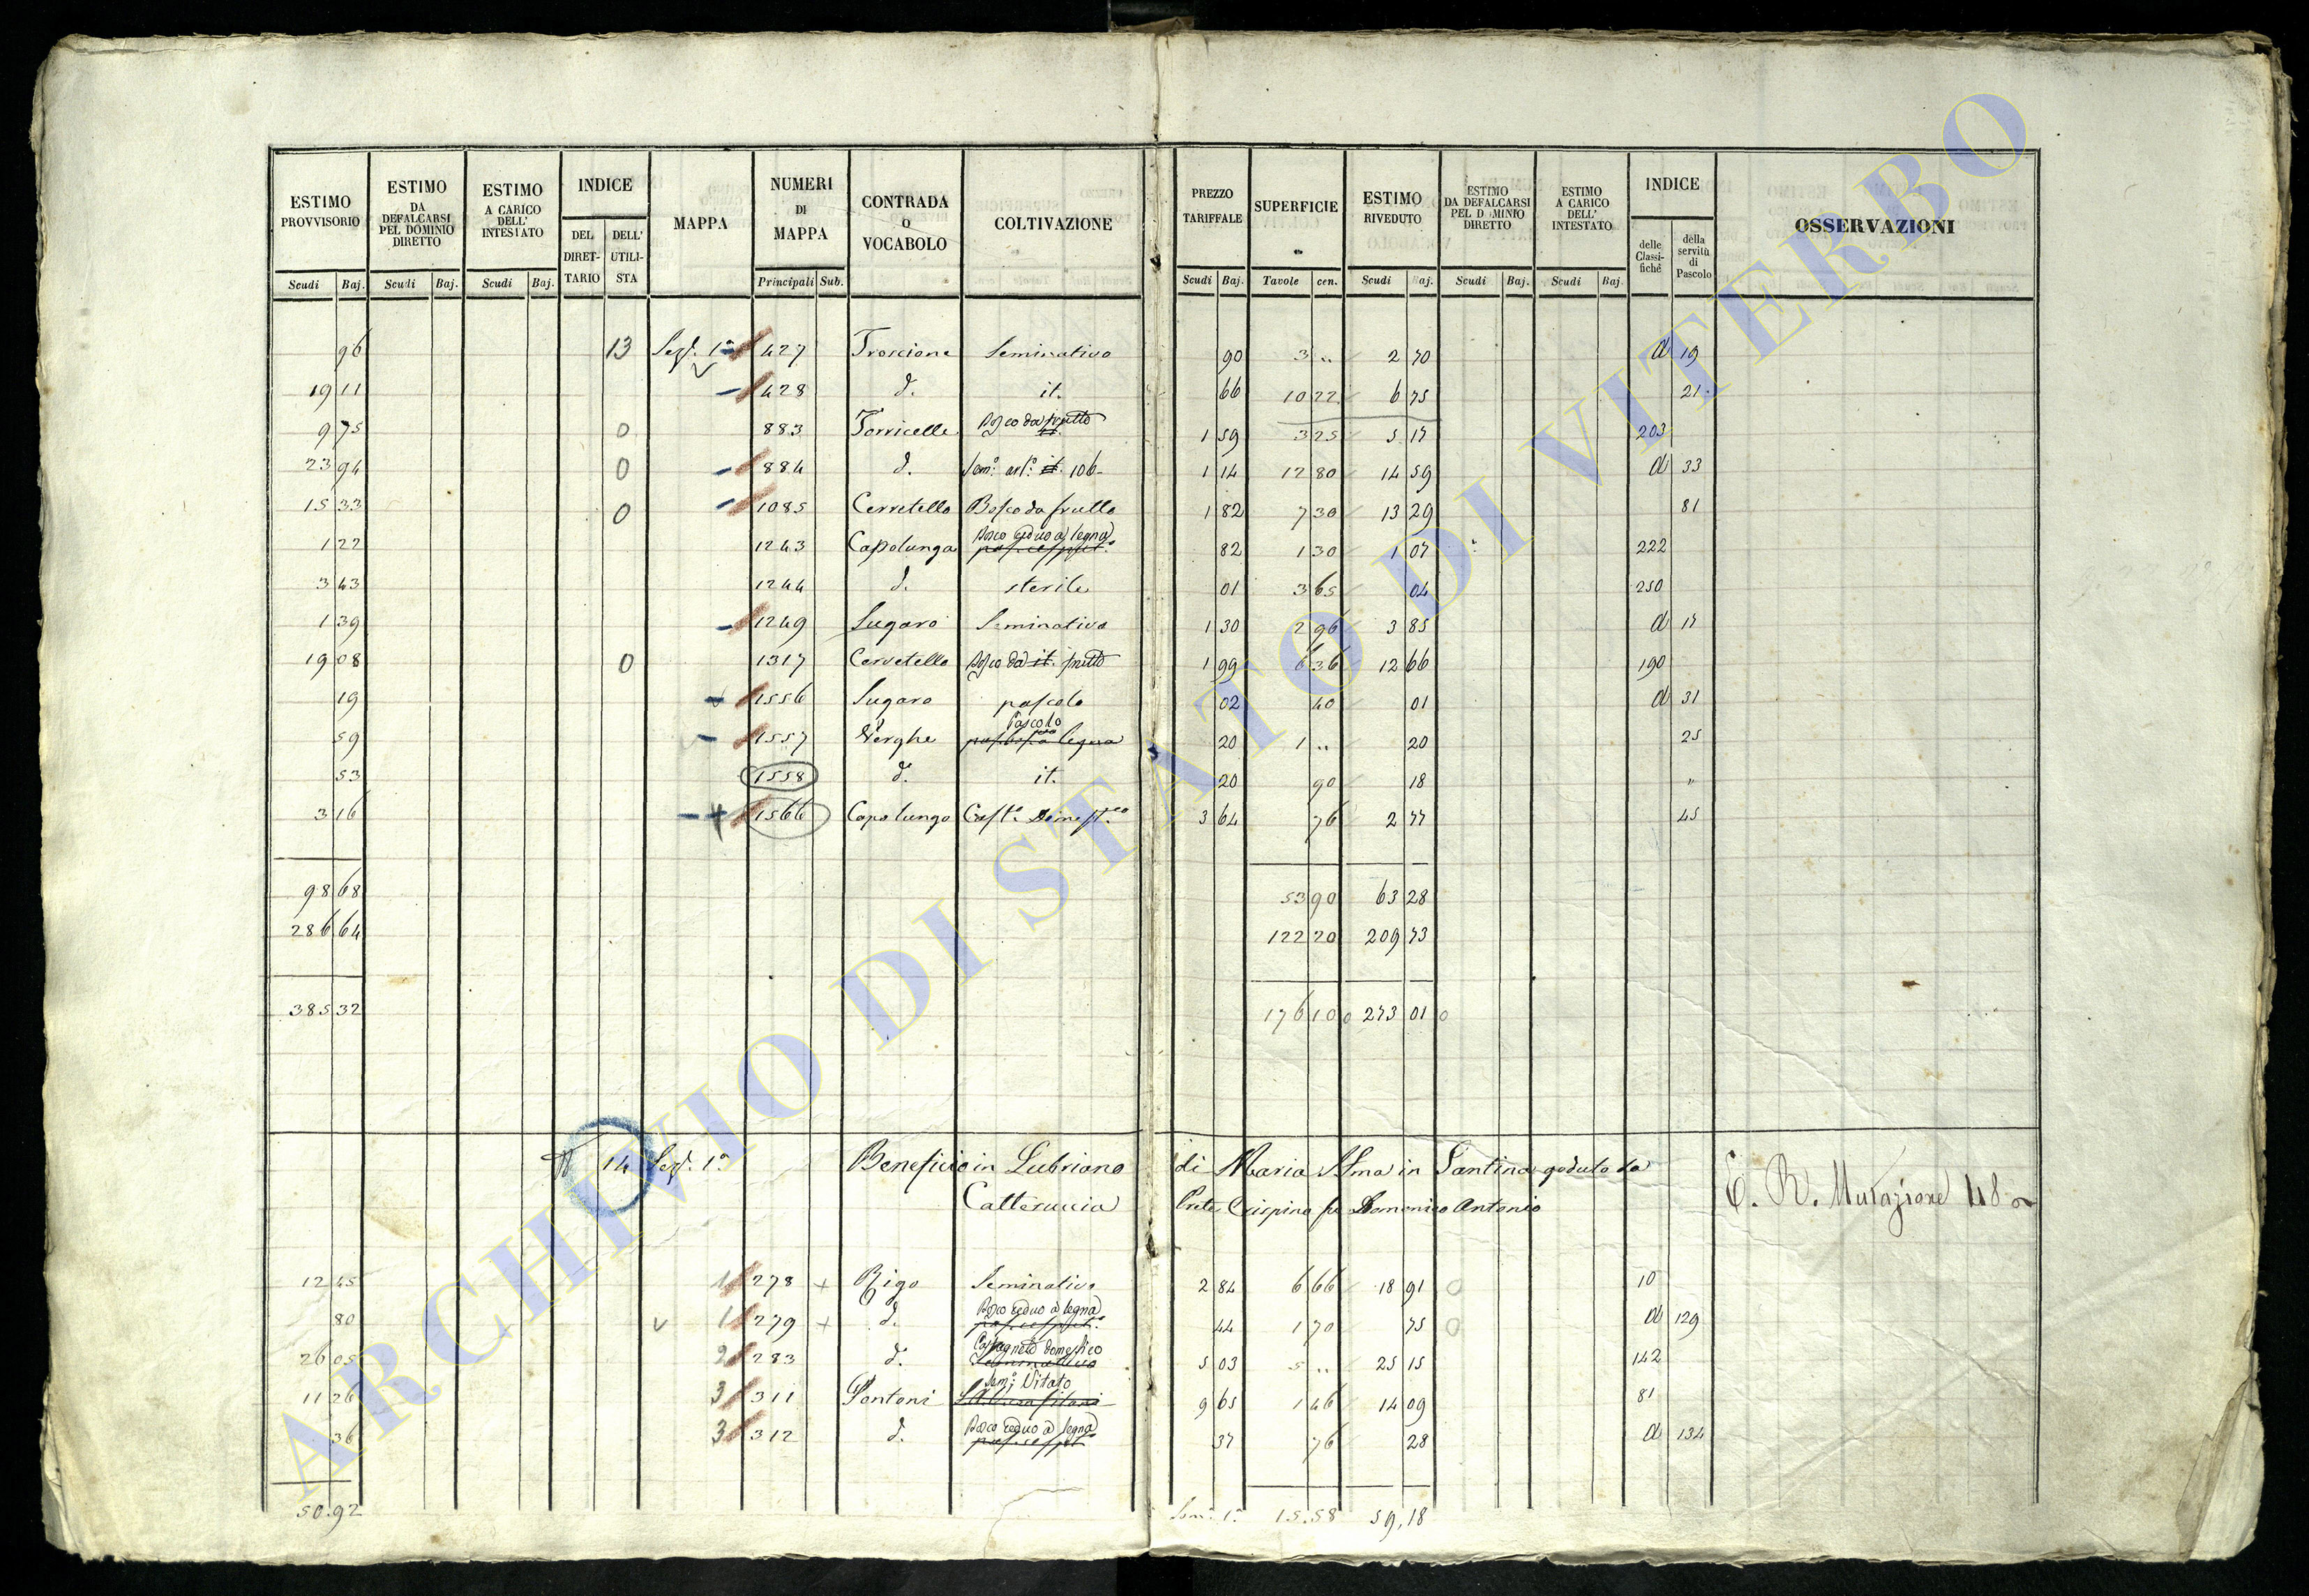 ESTIMO PROVVISORIO
ESTIMO DA DEFALCARSI PEL DOMINIO DIRETTO
ESTIMO A CARICO DELL' INTESTATO
INDICE
DEL DIRETTARIO
DELL' UTILISTA
MAPPA
NUMERI DI MAPPA
CONTRADA o VOCABOLO
COLTIVAZIONE
PREZZO TARIFFALE
SUPERFICIE
ESTIMO RIVEDUTO
ESTIMO DA DEFALCARSI PEL DOMINIO DIRETTO
ESTIMO A CARICO DELL' INTESTATO
INDICE
delle Classifiche
della servitù di Pascolo
OSSERVAZIONI
Scudi Baj. Scudi Baj. Scudi Baj. Principali Sub. Scudi Baj. Tavole cen. Scudi Baj. Scudi Baj. Scudi Baj.
96 13 Sez. 1a 427 Troscione Seminativo 90 3 ,, 2 70 a 19
19 11 428 d. it. 66 10 22 6 75 21
9 75 0 883 Torricelle Bosco da frutto 1 59 3 25 5 17 203
23 94 0 884 d. Sem.o arb.o it. 106 1 14 12 80 14 59 a 33
15 33 0 1085 Cerretello Bosco da frutto 1 82 7 30 13 29 81
1 22 1243 Capolunga Bosco ceduo a legna 82 1 30 1 07 222
3 43 1244 d. sterile 01 3 65 04 250
1 39 1249 Sugaro Seminativo 1 30 2 96 3 85 a 17
19 08 0 1317 Cerretello Bosco da it. frutto 1 99 6 36 12 66 190
19 1556 Sugaro pascolo 02 40 01 a 31
59 1557 Verghe Pascolo 20 1 ,, 20 25
53 1558 d. it. 20 90 18 "
3 16 1566 Capolungo Cast.o Domest.co 3 64 76 2 77 45
98 68 53 90 63 28
286 64 122 20 209 73
385 32 176 10 0 273 01 0
14 Sez. 1a Beneficio in Lubriano di Maria SSma in Santina goduto da
Catteruccia Prete Crispino fu Domenico Antonio
E. R. Mutazione 48
12 45 1 278 + Rigo Seminativo 2 84 6 66 18 91 0 10
80 1 279 + d. Bosco ceduo a legna 44 1 70 75 0 a 129
26 05 2 283 d. Castagneto domestico Seminativo 5 03 5 ,, 25 15 142
11 26 3 311 Pontoni Sem.o Vitato 9 65 1 46 14 09 81
36 3 312 d. Bosco ceduo a legna 37 76 28 a 134
50.92 15.58 59,18
ARCHIVIO DI STATO DI VITERBO